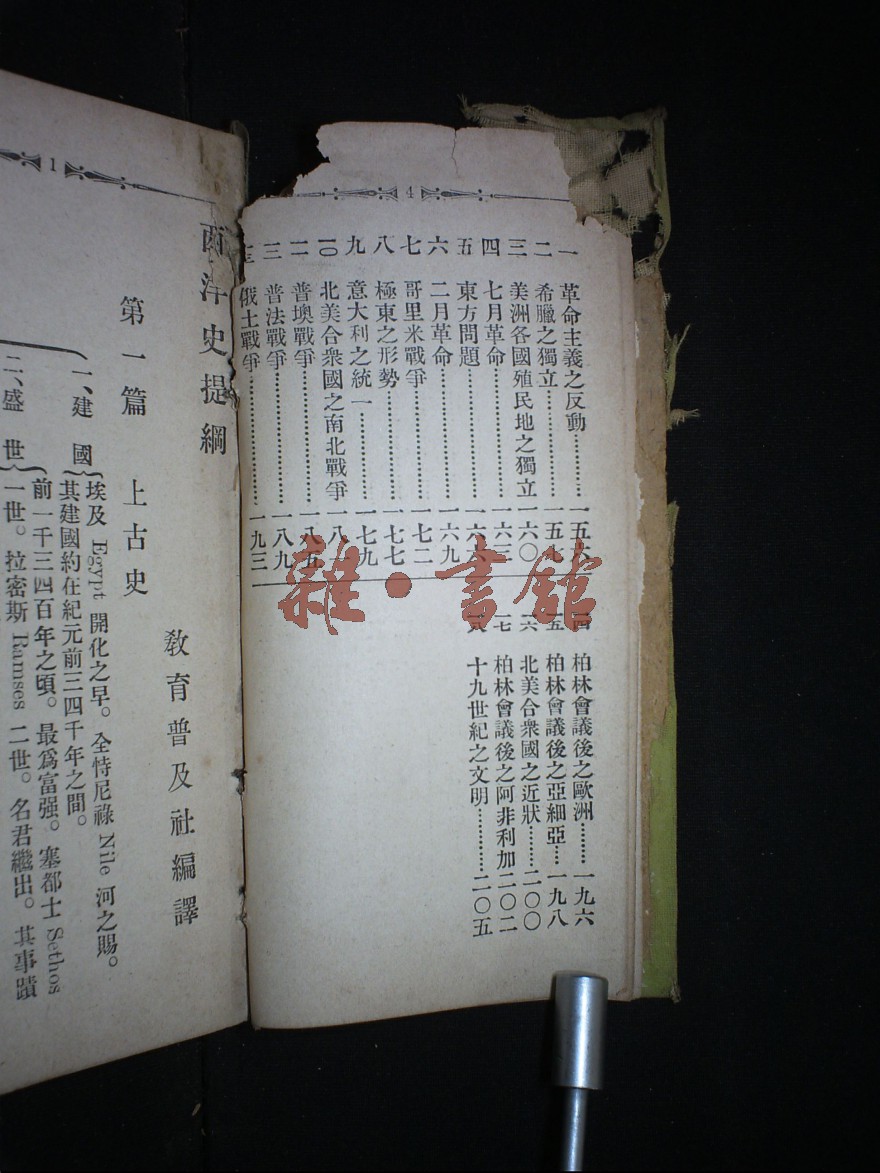 4
一 革命主義之反動…………一五六
二 希臘之獨立…………一五七
三 美洲各國殖民地之獨立……一六〇
四 七月革命…………一六三
五 東方問題…………一六六
六 二月革命…………一六九
七 哥里米戰爭…………一七二
八 極東之形勢…………一七七
九 意大利之統一…………一七九
一〇 北美合衆國之南北戰爭……一八一
二 普墺戰爭…………一八五
三 普法戰爭…………一八九
俄土戰爭…………一九三
一四 柏林會議後之歐洲………一九六
一五 柏林會議後之亞細亞……一九八
一六 北美合衆國之近狀………二〇〇
一七 柏林會議後之阿非利加 二〇二
一八 十九世紀之文明…………二〇五
雜·書館
1
西洋史提綱
教育普及社編譯
第一篇 上古史
一、建國
埃及 Egypt 開化之早。全恃尼祿 Nile 河之賜。
其建國約在紀元前三四千年之間。
二、盛世
前一千三四百年之頃。最爲富强。塞都士 Sethos
一世。拉密斯 Ramses 二世。名君繼出。其事蹟